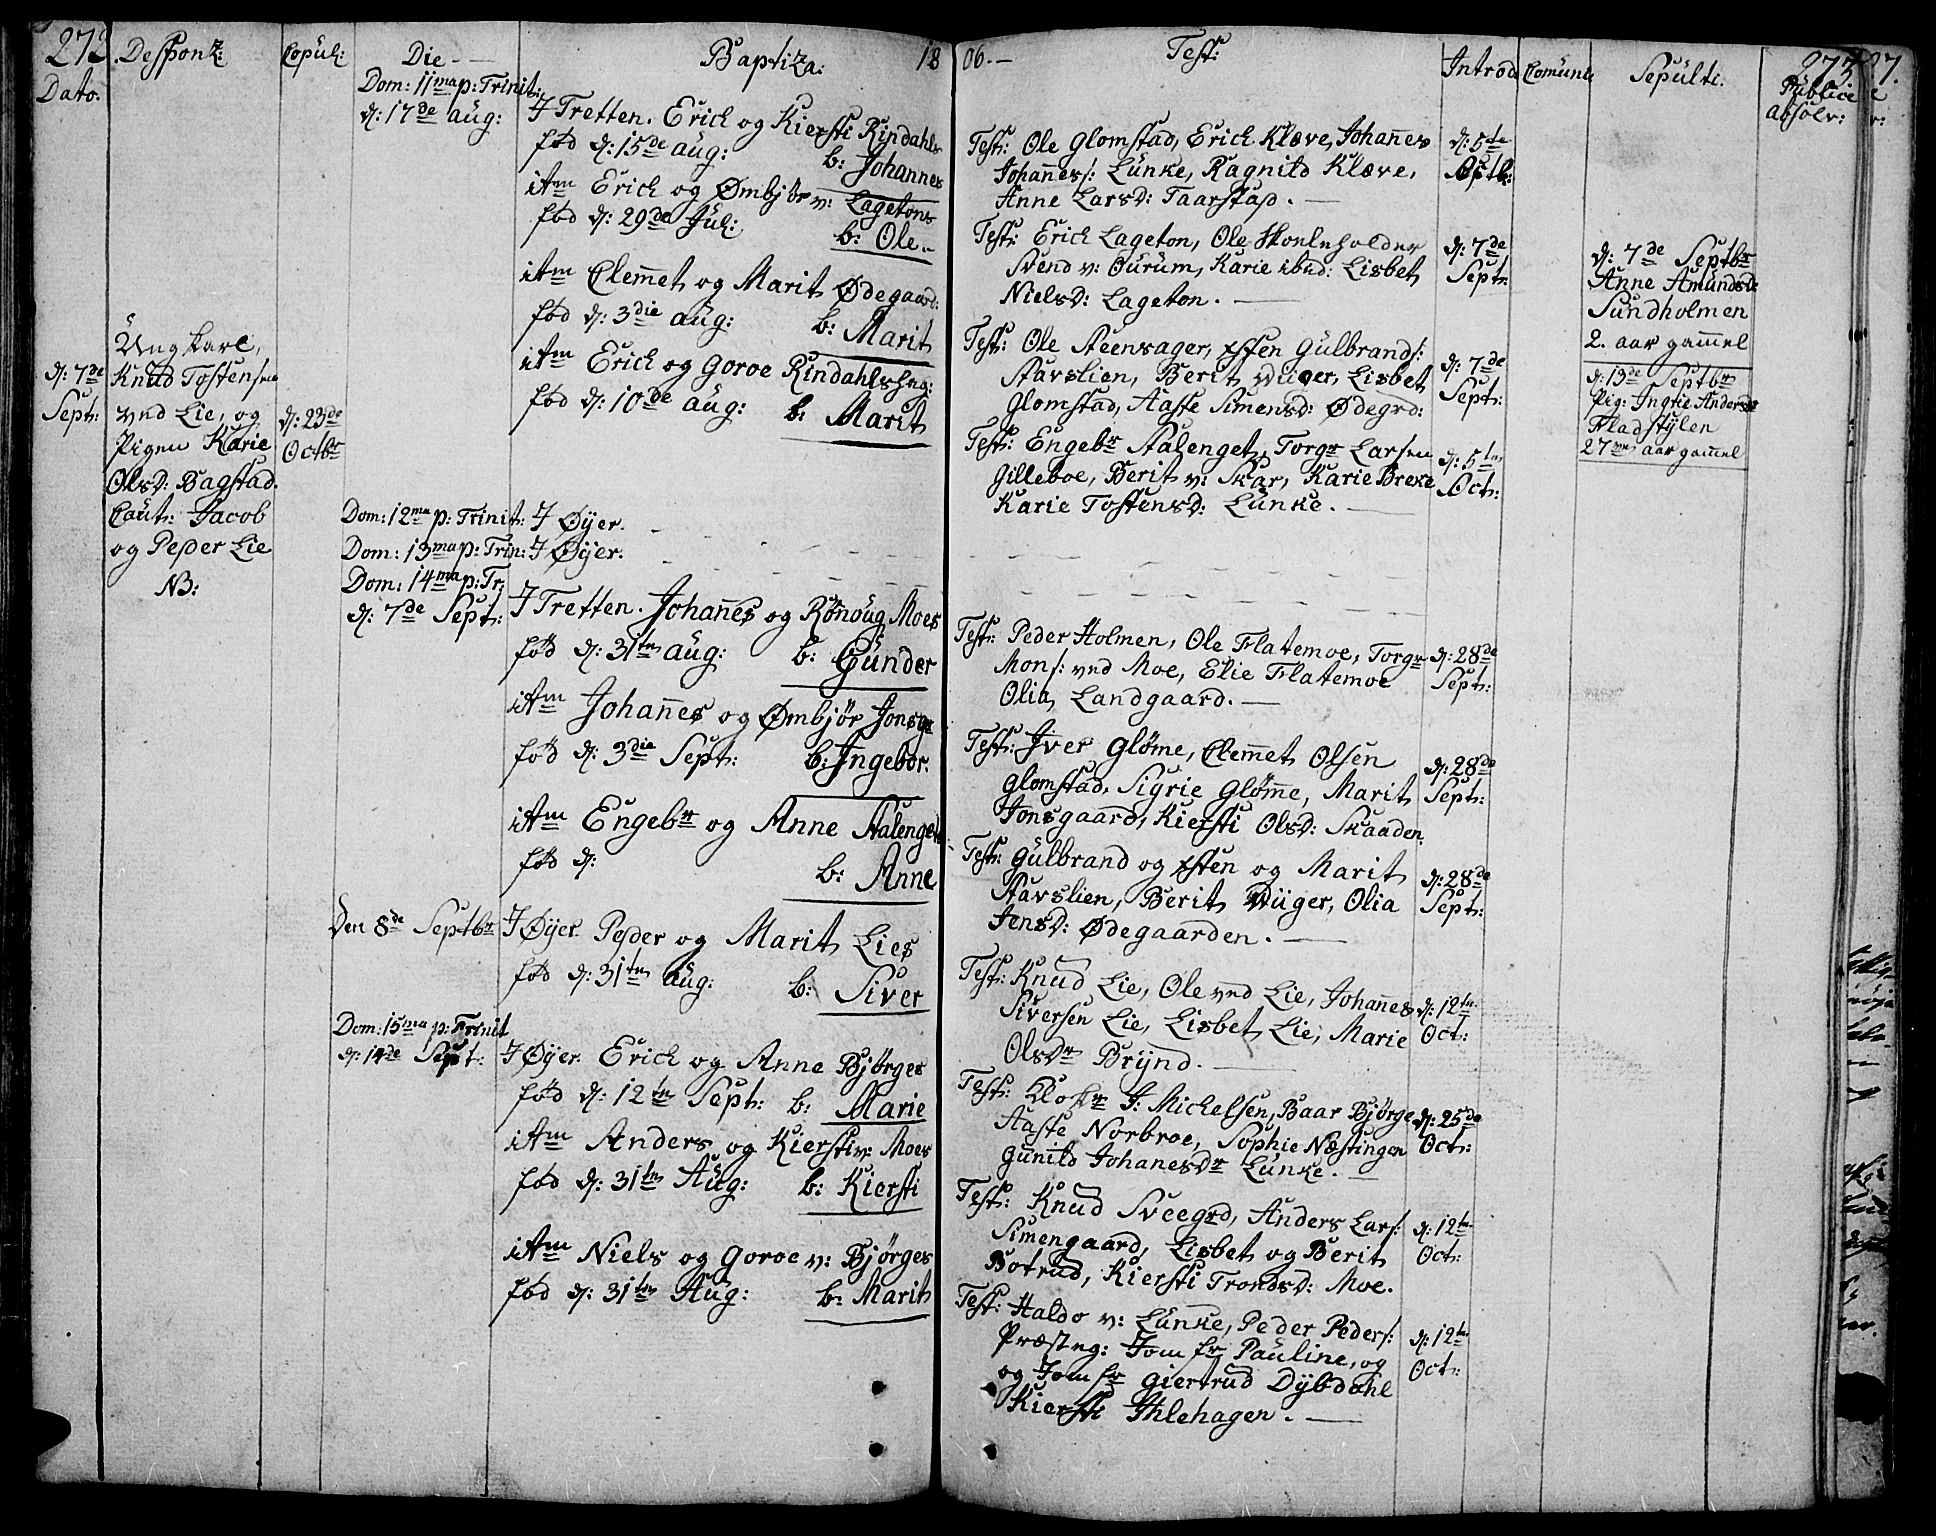 272
Desponz:
Copul:
Die
Baptiza:
18
Dato.
Dom: 11ma p: Trinit:
d: 17de aug:
d: 7de
Sept:
Ung karl,
Knud Tostensen
ved Lie, og
Pigen Karie
Olsd: Bagstad.
Caut: Jacob
og Peder Lie
NB:
d: 23de
Octbr
I Tretten. Erich og Kiersti Rindahls
fød d: 15de aug: b: Johannes
itm Erich og Ømbjør v: Lagetons
fød d: 29de Jul: b: Ole.
itm Clemet og Marit Ødegaard:
fød d: 3die aug: b: Marit
itm Erich og Goroe Rindahlshng:
fød d: 10de aug: b: Marit
Dom: 12ma p: Trinit: I Øyer.
Dom: 13ma p: Trin: I Øyer.
Dom: 14ma p: Tr:
d: 7de Sept: I Tretten. Johannes og Rønoug Moes
fød d: 31te aug: b: Gunder
itm Johannes og Ømbjør Jonsgr
fød d: 3die Sept: b: Ingebor.
itm Engebr og Anne Stalenget
fød d: b: Anne
Den 8de Septbr I Øyer. Peder og Marit Lies
fød d: 31te aug: b: Siver
Dom: 15ma p: Trinit
d: 14de Sept: I Øyer. Erich og Anne Bjørges
fød d: 12te Sept: b: Marie
itm Anders og Kiersti v: Moes
fød d: 31te Aug: b: Kiersti
itm Niels og Goroe v: Bjørges
fød d: 31te Aug: b: Marit
06.
Test:
Introd
Comuni
Sepulti.
273
Publice
absolv:
Test: Ole Glomstad, Erich Klæve, Johannes
Johannes: Lunke, Ragnild Klæve,
Anne Larsd: Taarstad.
d: 5te
Octb:
Test: Erich Lageton, Ole Skoleholder
Svend v: Ourum, Karie ibid: Lisbet
Nielsd: Lageton.
d: 7de
Sept:
Test: Ole Steensager, Xsten Gulbrands:
Stavslien, Berit Wüger, Lisbet
Glomstad, Aaste Simensd: Ødegrd:
d: 7de
Sept:
Test: Engebr Stalenget, Torgr Larsen
Gilleboe, Berit v: Skar, Karie Breke
Karie Tostensd: Lunke.
d: 5te
Oct:
Test: Peder Holmen, Ole Flatemoe, Torgr
Mons: ved Moe, Elie Flatemoe
Olia Landgaard.
d: 28de
Sept:
Test: Iver Glømme, Clemet Olsen
Glomstad, Sigrie Glømme, Marit
Jonsgaard, Kiersti Olsd: Skaaden.
d: 28de
Sept:
Test: Gulbrand og Xsten og Marit
Stavslien, Berit Wüger, Olia
Jensd: Ødegaarden.
d: 28de
Sept:
Test: Knud Lie, Ole ved Lie, Johanes
Siversen Lie, Lisbet Lie, Marie
Olsdr Brynd.
d: 12te
Oct:
Test: Klokr J: Michelsen, Baar Bjørge
Aaste Norbroe, Sophie Næstingen
Gunild Johanesdr Lunke.
d: 25de
Oct:
Test: Knud Sveegrd, Anders Lars:
Simengaard, Lisbet og Berit
Botrud, Kiersti Trondsd: Moe.
d: 12te
Oct:
Test: Haldo v: Lunke, Peder Peders:
Præsteg: Jomfr Pauline, og
og Jomfr Giertrud Dybdahl
Kiersti Ihlehagen.
d: 12te
Oct:
d: 7de Septbr
Anne Amundsd:
Sundholmen
2. aar gammel
d: 13de Septbr
Pig: Ingrie Andersdr
Fladstylen
27 aar gammel